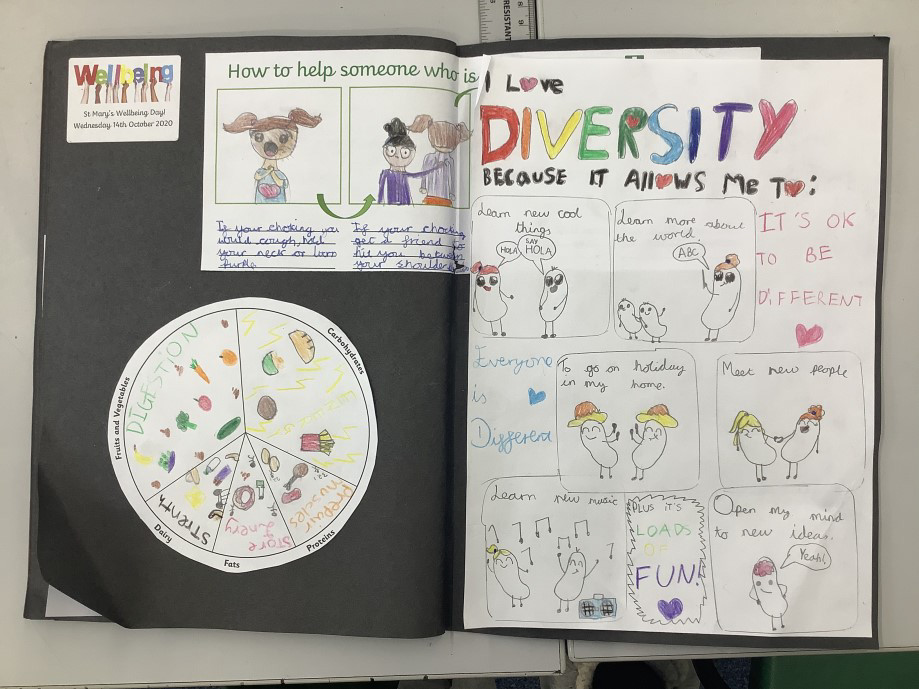 Wellbeing
St Mary's Wellbeing Day!
Wednesday 14th October 2020
How to help someone who is
If your choking you
would cough, hold
your neck or
If your choking
get a friend to
hit you between
your shoulder
Fruits and Vegetables
DIGESTION
Carbohydrates
Dairy
Fats
Store
Proteins
muscles
I Love
DIVERSITY
BECAUSE IT AllOWS Me To:
Learn new cool
things
HOLA
SAY
HOLA
Learn more about
the world.
ABC
IT'S OK
TO BE
DIFFERENT
Everyone
is
Different
To go on holiday
in my home.
Meet new people
Learn new music
PLUS IT'S
LOADS
OF
FUN!
Open my mind
to new ideas.
Yeah!
RESISTANT